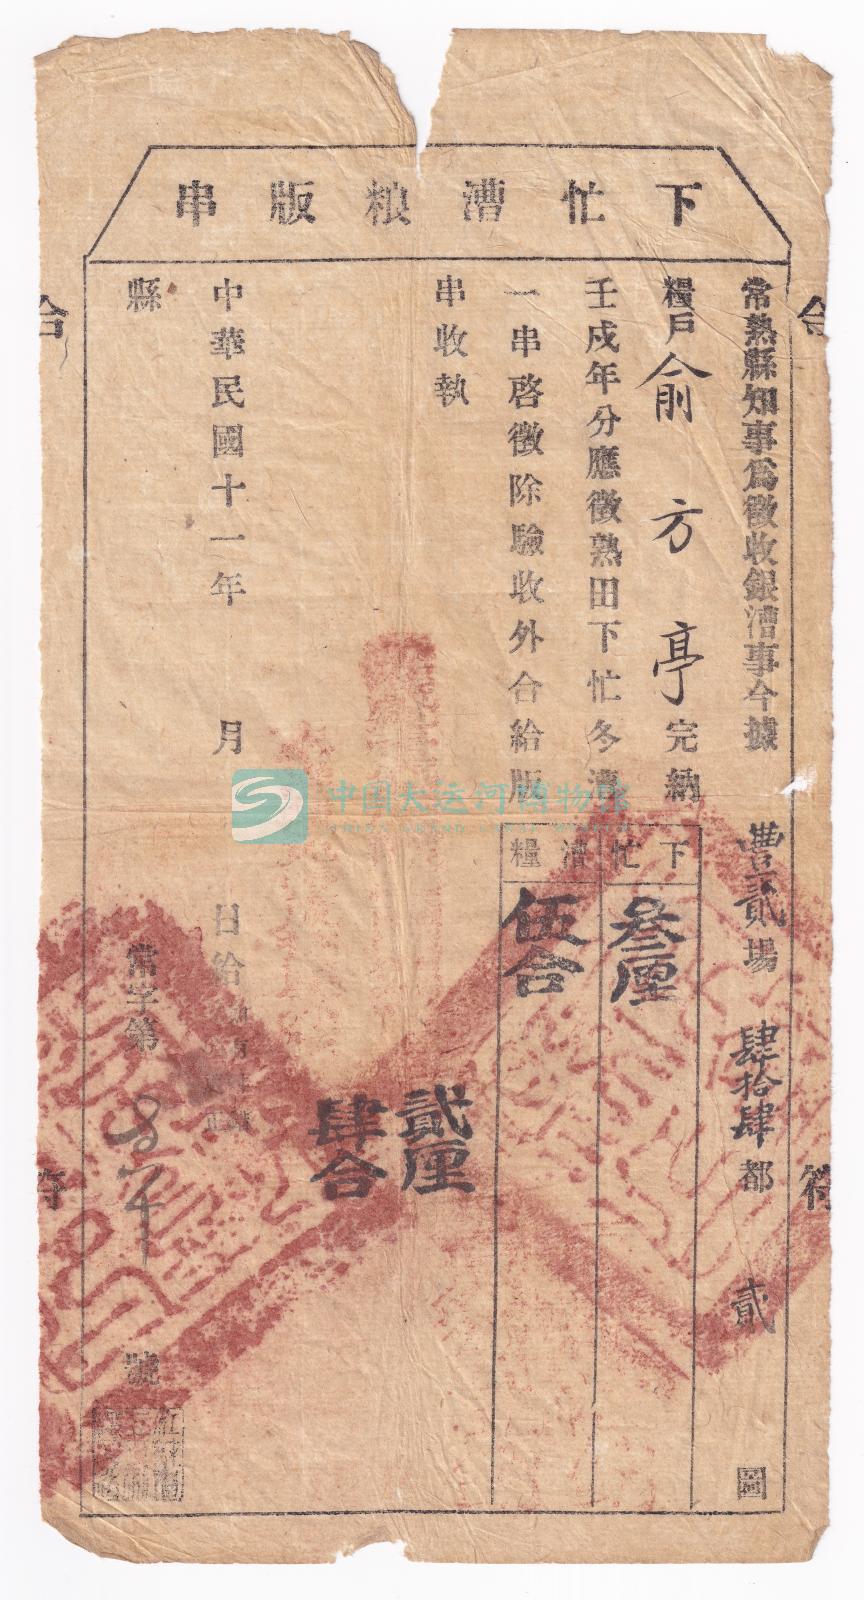 下忙漕粮版串
常熟縣知事爲徵收銀漕事今據
豊貳場 肆拾肆都 貳 圖
糧戶俞方亭完納
壬戌年分應徵熟田下忙冬漕
一串啓徵除驗收外合給版
串收執
下忙
叁厘
漕糧
伍合
貳厘
肆合
中華民國十一年 月 日給
縣
常字第 號
合
符
合
符
中国大运河博物馆
CHINA GRAND CANAL MUSEUM